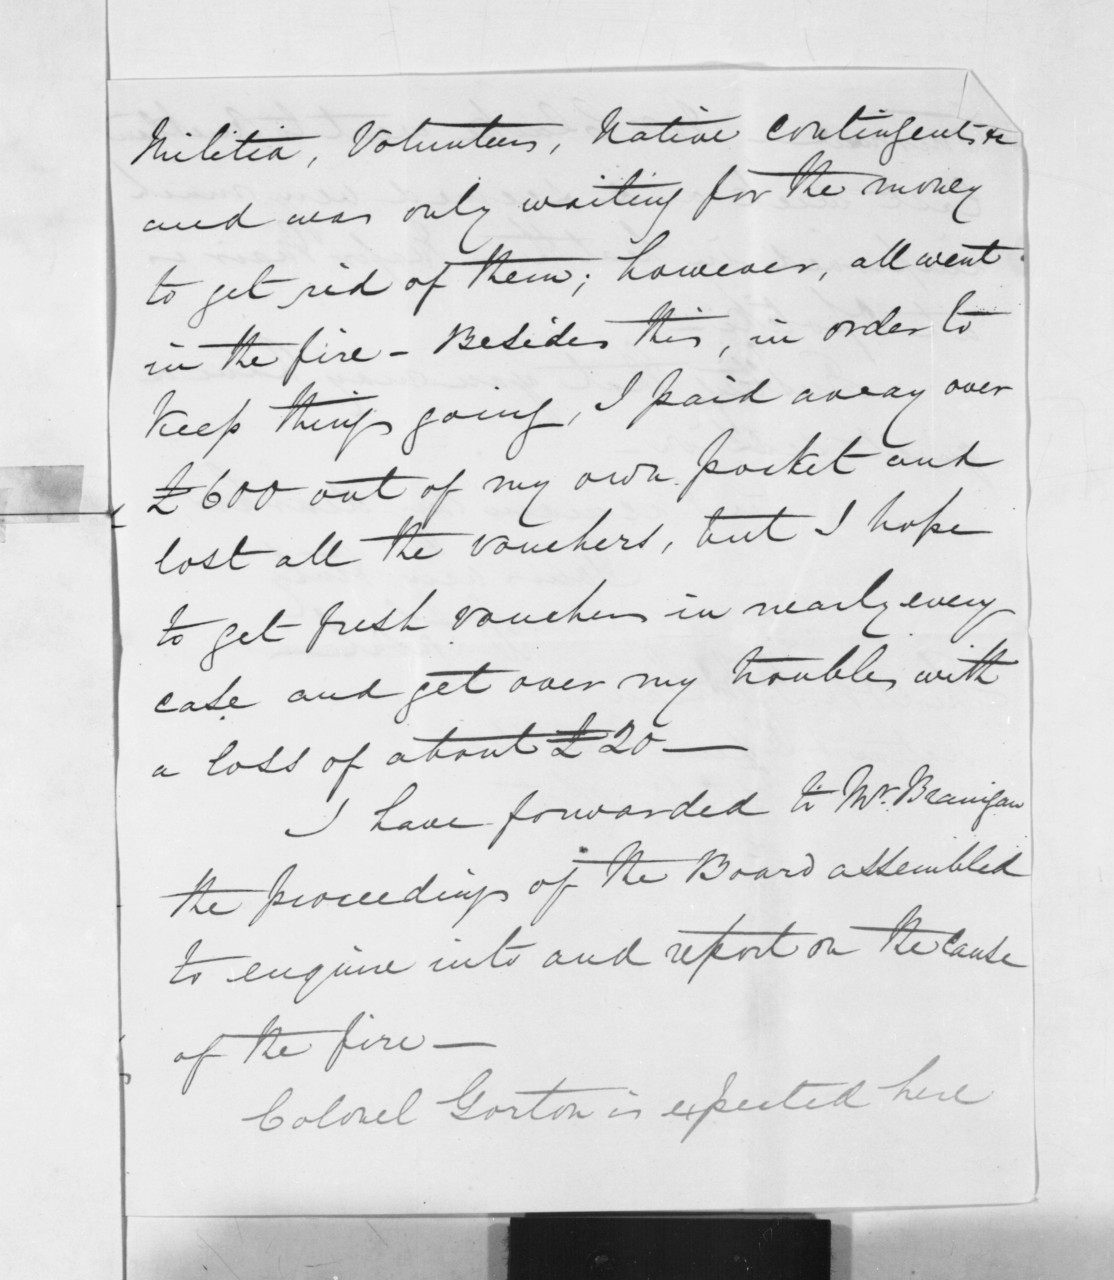 Militia, Volunteers, Native Contingent &c
and was only waiting for the money
to get rid of them; however, all went
in the fire - Besides this, in order to
keep things going, I paid away over
£600 out of my own pocket and
lost all the vouchers, but I hope
to get fresh vouchers in nearly every
case and get over my troubles with
a loss of about £20 —
I have forwarded to Mr. Branigan
the proceedings of the Board assembled
to enquire into and report on the cause
of the fire —
Colonel Gorton is expected here